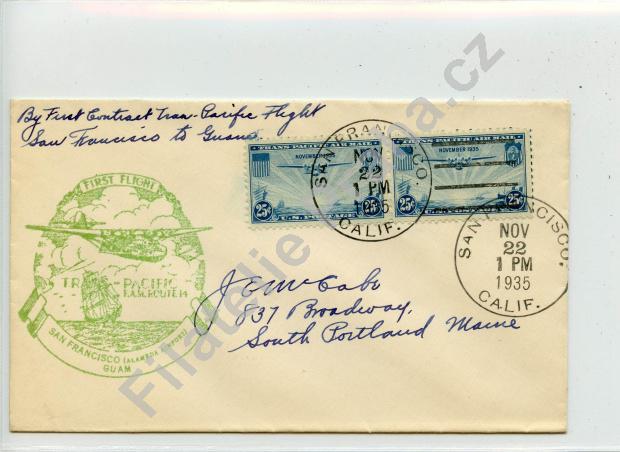 By First Contract Tran-Pacific Flight
San Francisco to Guam
TRANS-PACIFIC AIR MAIL
NOVEMBER 1935
25¢ 25¢
U.S. POSTAGE
TRANS-PACIFIC AIR MAIL
NOVEMBER 1935
25¢ 25¢
U.S. POSTAGE
SAN FRANCISCO
NOV
22
1 PM
1935
CALIF.
SAN FRANCISCO,
NOV
22
1 PM
1935
CALIF.
FIRST FLIGHT
TRANS-PACIFIC
F.A.M. ROUTE 14
SAN FRANCISCO (ALAMEDA AIRPORT)
GUAM
J E McCabe
837 Broadway,
South Portland Maine